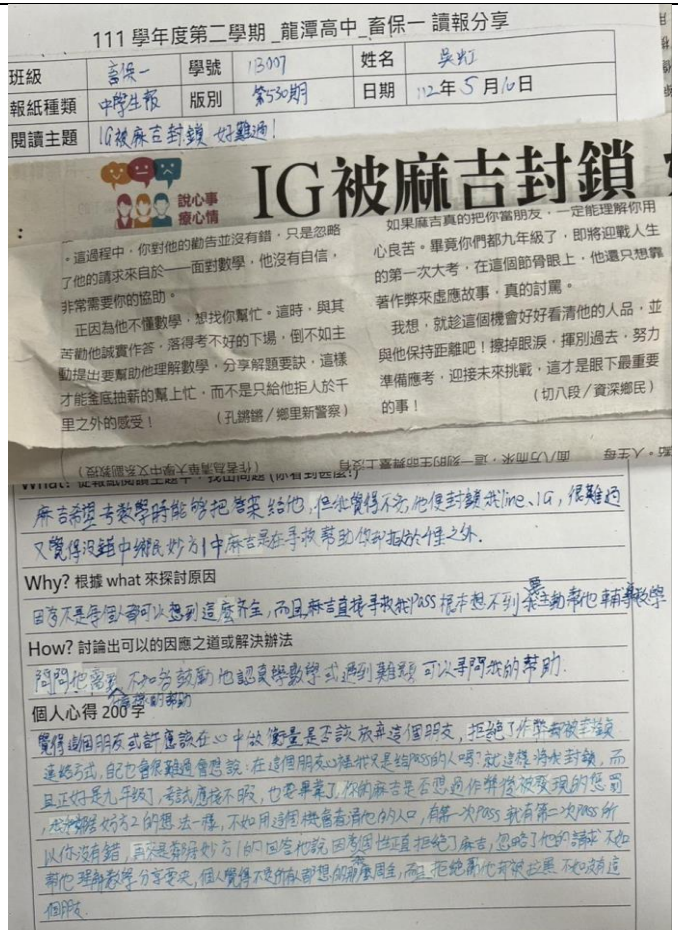 111 學年度第二學期_龍潭高中_畜保一 讀報分享
班級 畜保一 學號 113007 姓名 吳
報紙種類 中學生報 版別 第530期 日期 112年5月10日
閱讀主題 IG被麻吉封鎖 好難過!
說心事
療心情
IG被麻吉封鎖
。這過程中,你對他的勸告並沒有錯,只是忽略
了他的請求來自於——面對數學,他沒有自信,
非常需要你的協助。
正因為他不懂數學,想找你幫忙。這時,與其
苦勸他誠實作答,落得考不好的下場,倒不如主
動提出要幫助他理解數學,分享解題要訣,這樣
才能釜底抽薪的幫上忙,而不是只給他拒人於千
里之外的感受!
(孔鏘鏘/鄉里新警察)
如果麻吉真的把你當朋友,一定能理解你用
心良苦。畢竟你們都九年級了,即將迎戰人生
的第一次大考,在這個節骨眼上,他還只想靠
著作弊來虛應故事,真的討罵。
我想,就趁這個機會好好看清他的人品,並
與他保持距離吧!擦掉眼淚,揮別過去,努力
準備應考,迎接未來挑戰,這才是眼下最重要
的事!
(切八段/資深鄉民)
(作者為清華大學中文系副教授)
What? 從報紙閱讀主題中,找出問題 (你看到甚麼?)
麻吉希望考數學時能夠把答案給他,但我覺得不完,他便封鎖我line、IG,很難過
又覺得沒錯中鄉民妙方1中麻吉是在手救幫助你卻拒於千里之外.
Why? 根據 what 來探討原因
因為不是每個人都可以想到這麼齊全,而且麻吉直接尋救我Pass根本想不到要主動幫他輔導數學
How? 討論出可以的因應之道或解決辦法
問問他需不需要我的幫助 不如者鼓勵他認真學數學或遇到難題可以尋問我的幫助.
個人心得 200 字
覺得這個朋友或許應該在心中做衡量是否該放棄這個朋友,拒絕了作弊卻被封鎖
連絡方式,自己也會很難過會想說:在這個朋友心裡我只是給Pass的人嗎?就這樣將我封鎖,而
且正好是九年級了,考試應接不暇,也要畢業了,你的麻吉是否想過作弊後被發現的懲罰
妙方2的想法一樣,不如用這個機會看清他的人口,有第一次Pass就有第二次Pass所
以你沒有錯,妙方1的回答他說因為個性正直拒絕了麻吉,忽略了他的請求不如
幫他理解數學分享要決,個人覺得不是所有人都想的那麼周全,而且拒絕
個朋友.